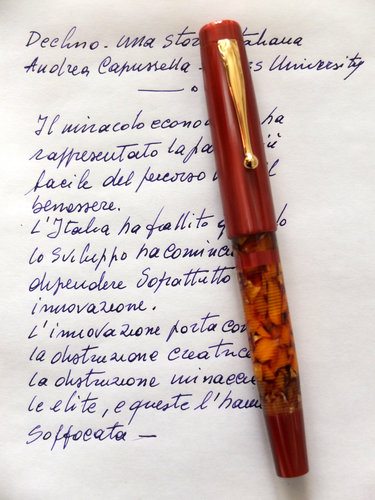 Declino - una storia italiana
Andrea Capussella - University
Il miracolo econo ha
rappresentato la pa più
facile del percorso il
benessere.
L'Italia ha fallito
lo sviluppo ha cominc
dipendere soprattutto
innovazione.
L'innovazione porta con
la distruzione creatrice
la distruzione minacci
le elite, e queste l'hann
soffocata -